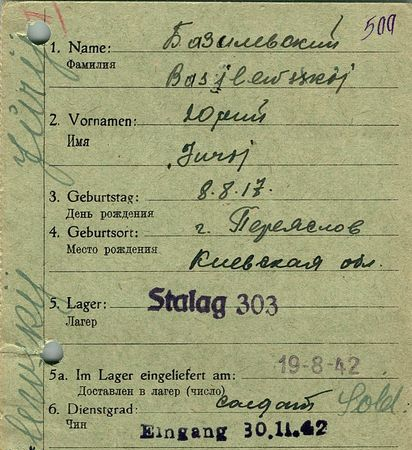 500
1. Name: Базилевский
Фамилия
Basylewskyj
2. Vornamen: Юрий
Имя
Juryj
3. Geburtstag: 8.8.17.
День рождения
4. Geburtsort: г. Переяслов
Место рождения
Киевская обл.
5. Lager: Stalag 303
Лагер
19-8-42
5a. Im Lager eingeliefert am:
Доставлен в лагер (число)
6. Dienstgrad: солдат Sold.
Чин
Eingang 30.11.42